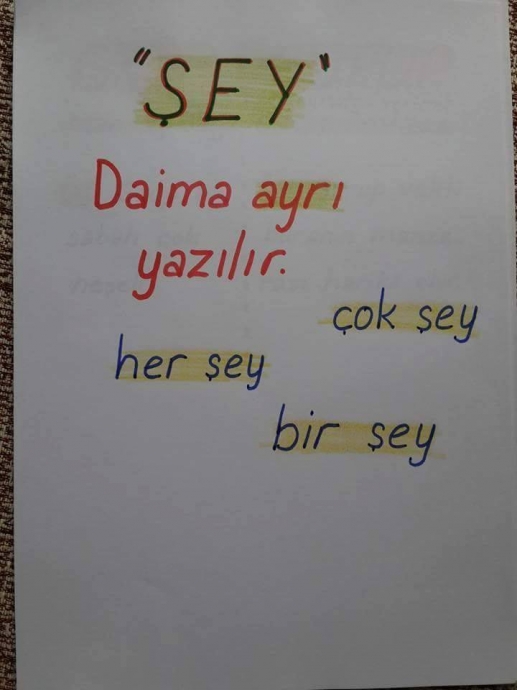 "ŞEY"
Daima ayrı
yazılır.
çok şey
her şey
bir şey